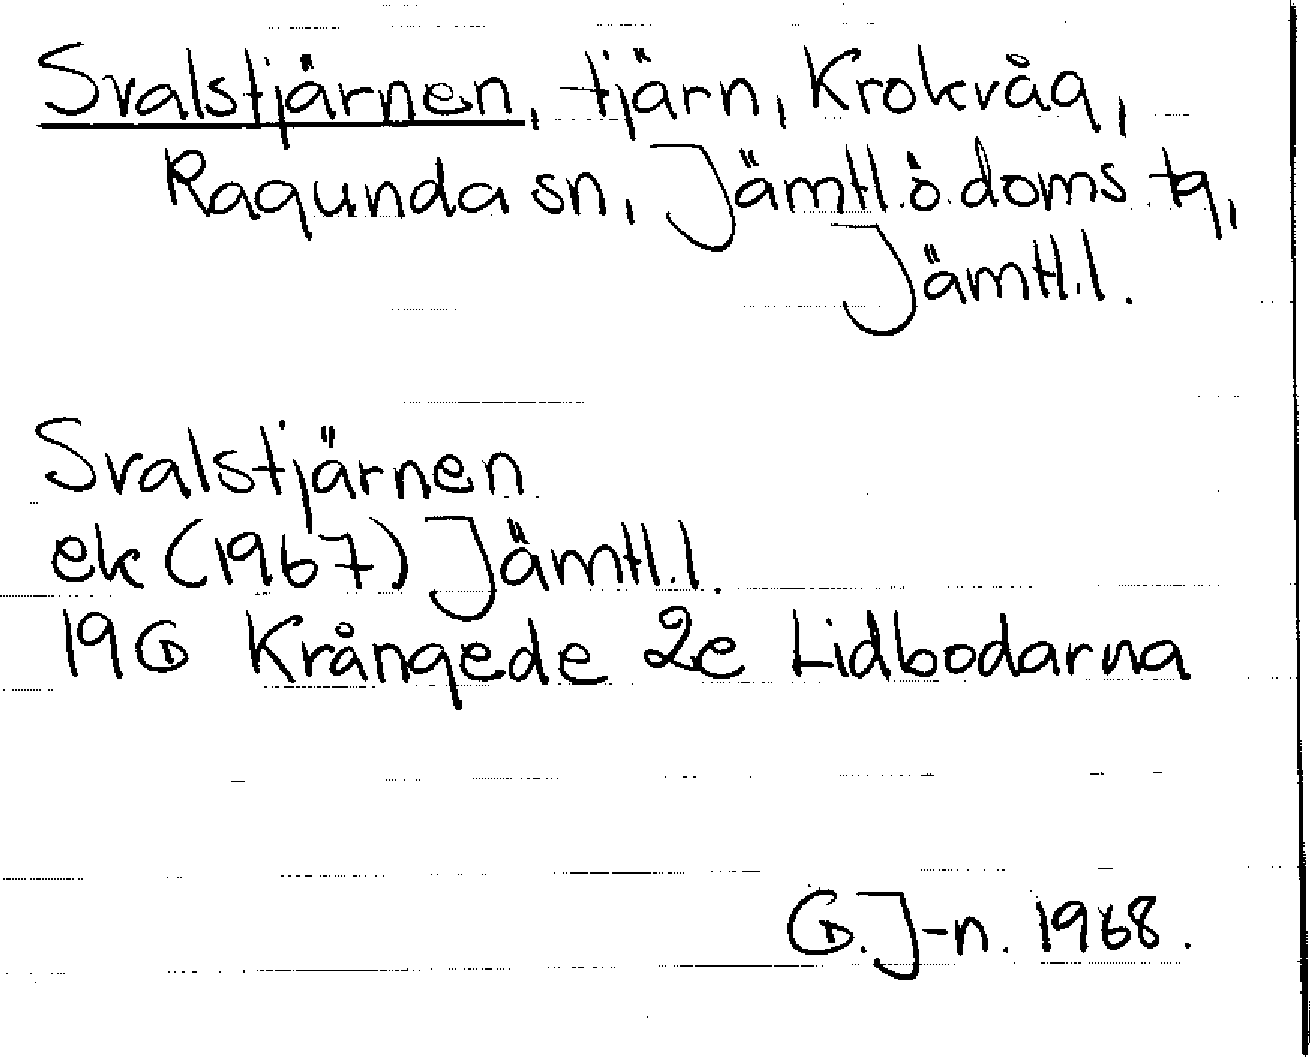 Svalstjärnen, tjärn, Krokvåg,
Ragunda sn, Jämtl.ö.doms tg,
Jämtl.l.
Svalstjärnen
ek (1967) Jämtl.l.
19G Krångede 2e Lidbodarna
G.J-n. 1968.